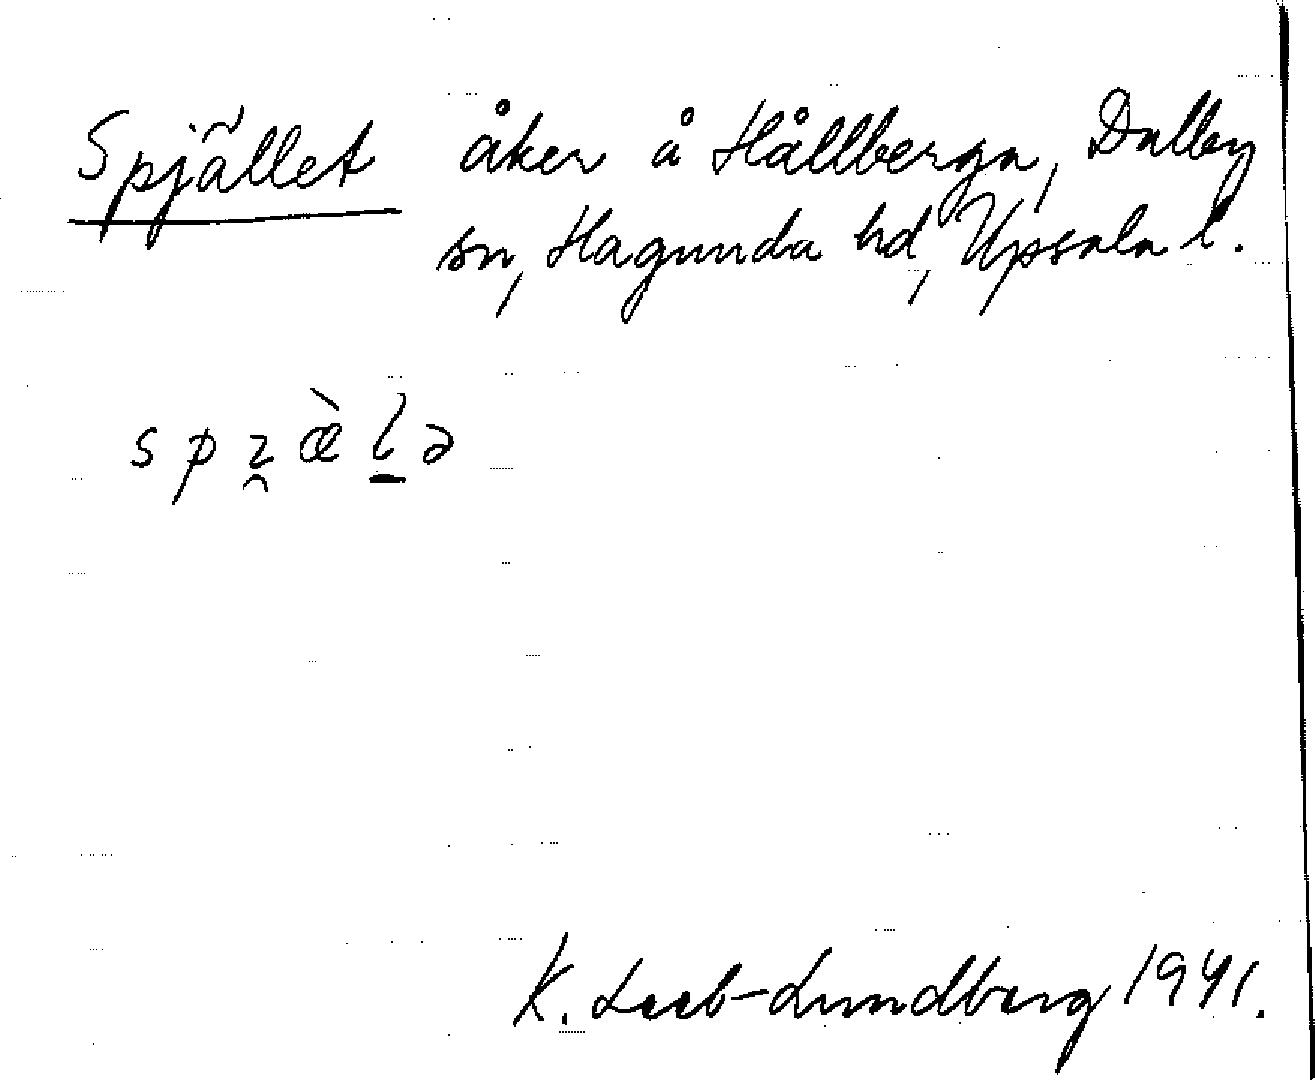 Spjället åker å Hållberga, Dalby
sn, Hagunda hd, Upsala l.
spɿ̯æ̀l̠ə
K. Leeb-Lundberg 1941.